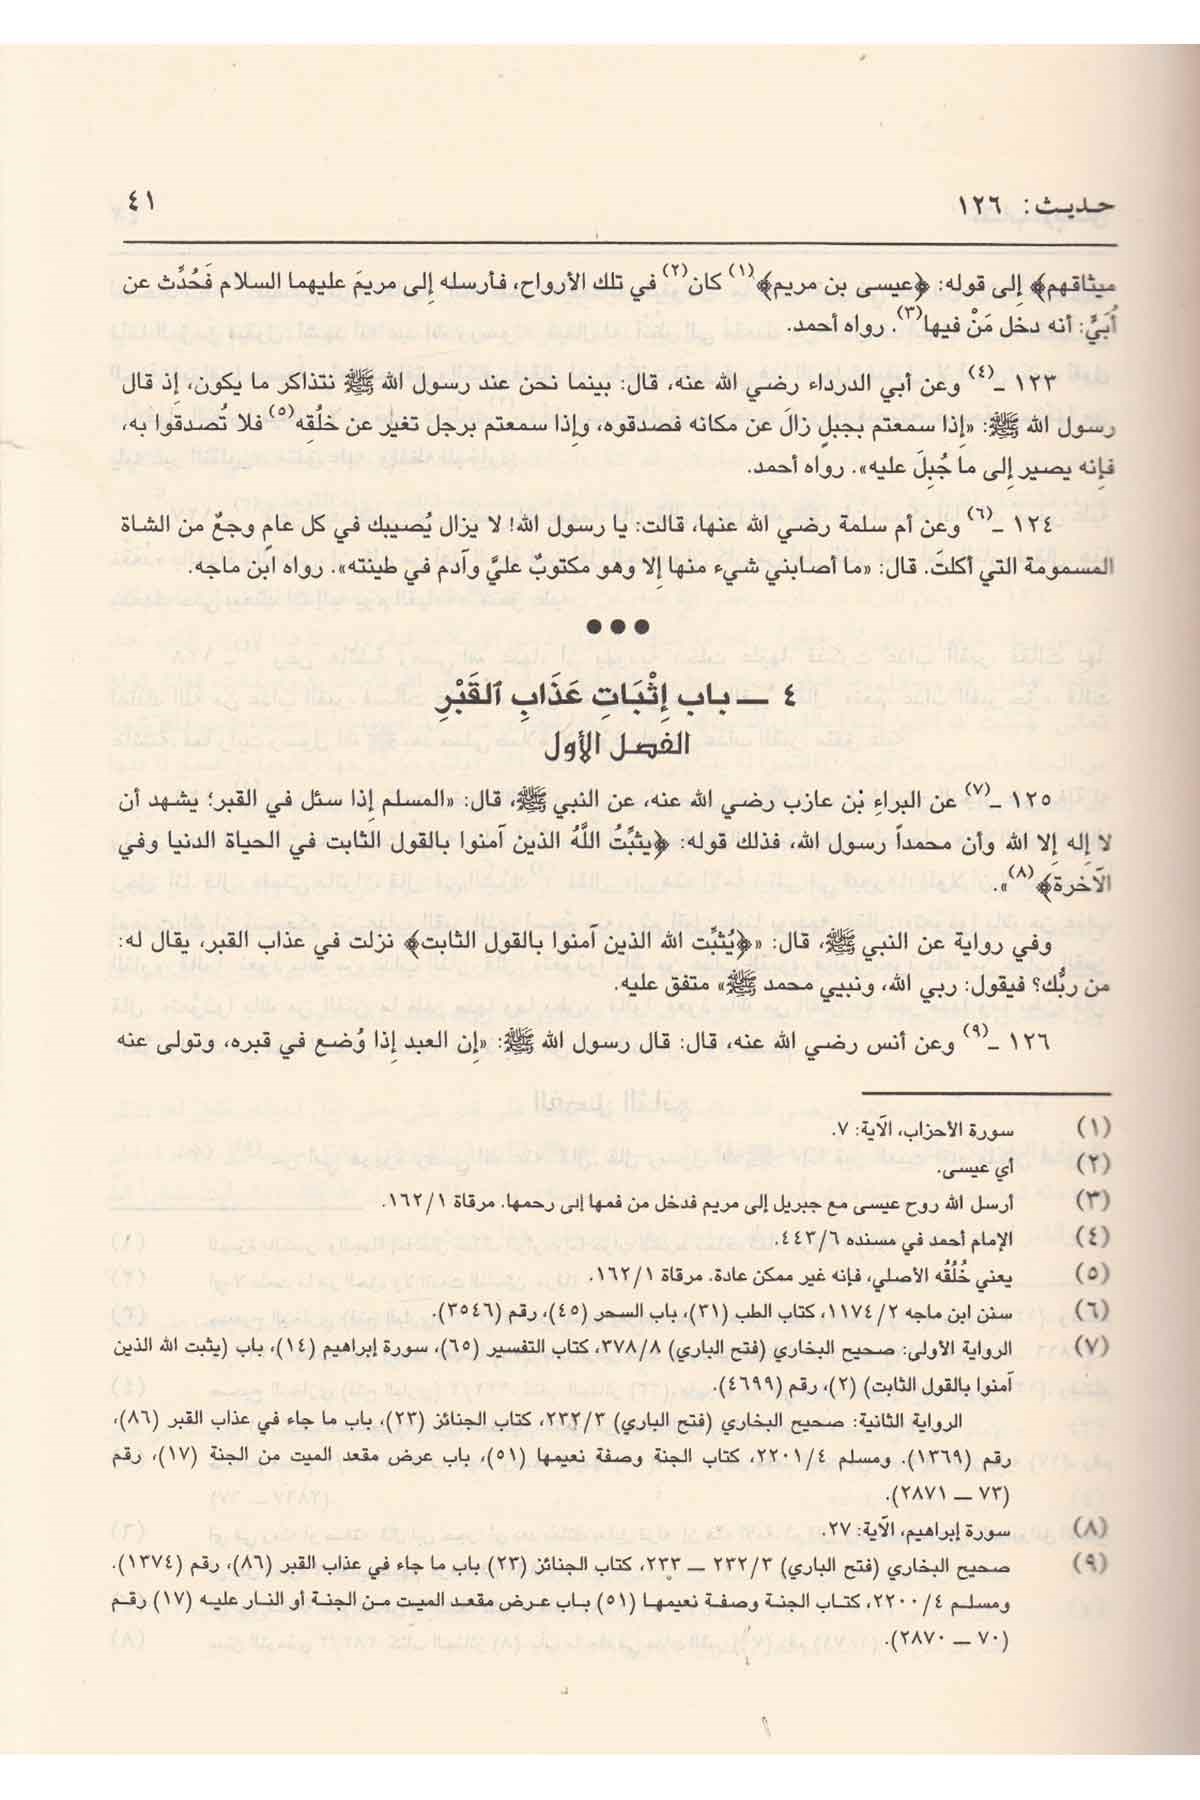 حديث: ١٢٦ ٤١
ميثاقهم﴾ إلى قوله: ﴿عيسى بن مريم﴾(١) كان(٢) في تلك الأرواح، فأرسله إلى مريمَ عليهما السلام فَحُدِّث عن
أُبَيٍّ: أنه دخل مَنْ فيها(٣). رواه أحمد.
١٢٣ ـ(٤) وعن أبي الدرداء رضي الله عنه، قال: بينما نحن عند رسول الله ﷺ نتذاكر ما يكون، إذ قال
رسول الله ﷺ: «إذا سمعتم بجبلٍ زالَ عن مكانه فصدقوه، وإذا سمعتم برجل تغير عن خلُقِه(٥) فلا تُصدقوا به،
فإنه يصير إلى ما جُبِلَ عليه». رواه أحمد.
١٢٤ ـ(٦) وعن أم سلمة رضي الله عنها، قالت: يا رسول الله! لا يزال يُصيبك في كل عامٍ وجعٌ من الشاة
المسمومة التي أكلتَ. قال: «ما أصابني شيء منها إلا وهو مكتوبٌ عليَّ وآدم في طينته». رواه ابن ماجه.
●●●
٤ ــ باب إِثْبَاتِ عَذَابِ القَبْرِ
الفصل الأول
١٢٥ ـ(٧) عن البراءِ بْن عازب رضي الله عنه، عن النبي ﷺ، قال: «المسلم إذا سئل في القبر؛ يشهد أن
لا إله إلا الله وأن محمداً رسول الله، فذلك قوله: ﴿يثبِّتُ اللَّهُ الذين آمنوا بالقول الثابت في الحياة الدنيا وفي
الآخرة﴾(٨)».
وفي رواية عن النبي ﷺ، قال: «﴿يُثبِّت الله الذين آمنوا بالقول الثابت﴾ نزلت في عذاب القبر، يقال له:
من ربُّك؟ فيقول: ربي الله، ونبيي محمد ﷺ» متفق عليه.
١٢٦ ـ(٩) وعن أنس رضي الله عنه، قال: قال رسول الله ﷺ: «إن العبد إذا وُضع في قبره، وتولى عنه
(١) سورة الأحزاب، الآية: ٧.
(٢) أي عيسى.
(٣) أرسل الله روح عيسى مع جبريل إلى مريم فدخل من فمها إلى رحمها. مرقاة ١/١٦٢.
(٤) الإمام أحمد في مسنده ٦/٤٤٣.
(٥) يعني خُلُقُه الأصلي، فإنه غير ممكن عادة. مرقاة ١/١٦٢.
(٦) سنن ابن ماجه ٢/١١٧٤، كتاب الطب (٣١)، باب السحر (٤٥)، رقم (٣٥٤٦).
(٧) الرواية الأولى: صحيح البخاري (فتح الباري) ٨/٣٧٨، كتاب التفسير (٦٥)، سورة إبراهيم (١٤)، باب (يثبت الله الذين
آمنوا بالقول الثابت) (٢)، رقم (٤٦٩٩).
الرواية الثانية: صحيح البخاري (فتح الباري) ٣/٢٣٢، كتاب الجنائز (٢٣)، باب ما جاء في عذاب القبر (٨٦)،
رقم (١٣٦٩). ومسلم ٤/٢٢٠١، كتاب الجنة وصفة نعيمها (٥١)، باب عرض مقعد الميت من الجنة (١٧)، رقم
(٧٣ ــ ٢٨٧١).
(٨) سورة إبراهيم، الآية: ٢٧.
(٩) صحيح البخاري (فتح الباري) ٣/٢٣٢ ــ ٢٣٣، كتاب الجنائز (٢٣) باب ما جاء في عذاب القبر (٨٦)، رقم (١٣٧٤).
ومسلم ٤/٢٢٠٠، كتاب الجنة وصفة نعيمها (٥١) باب عرض مقعد الميت من الجنة أو النار عليه (١٧) رقم
(٧٠ ــ ٢٨٧٠).